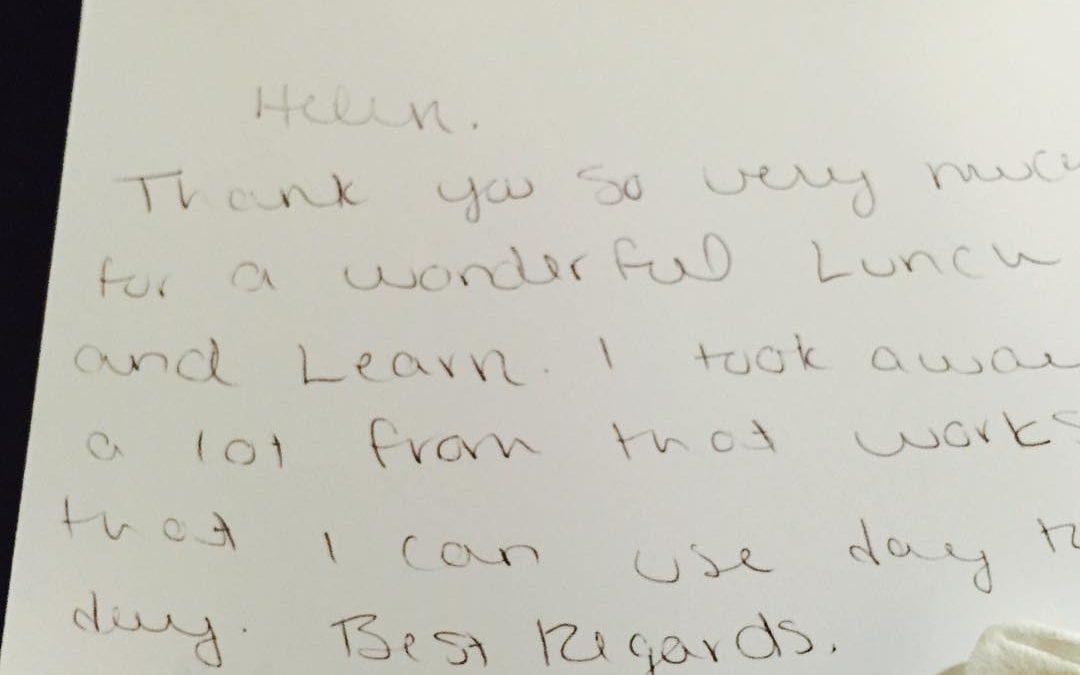 Helen.
Thank you so very muc
for a wonderful Lunch
and Learn. I took awa
a lot from that works
that I can use day t
day. Best Regards.